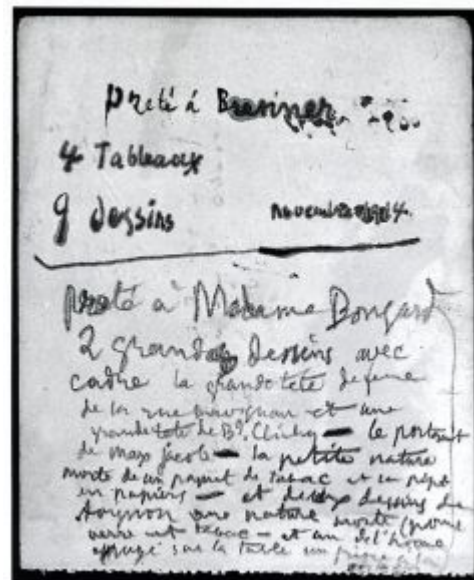 Preté á
4 Tableaux
9 dessins novembre 1914.
preté a Madame Bongard
2 grandes Dessins avec
cadre la grande tete de femme
de la rue ravignan et une
grande tete de Bd. Clichy — le portrait
de max Jacob — la petite nature
morte de un paquet de tabac et sa pipe
en papiers — et deux dessins de
Avignon une nature morte (poire
verre et tabac — et un de l'homme
sur la table un